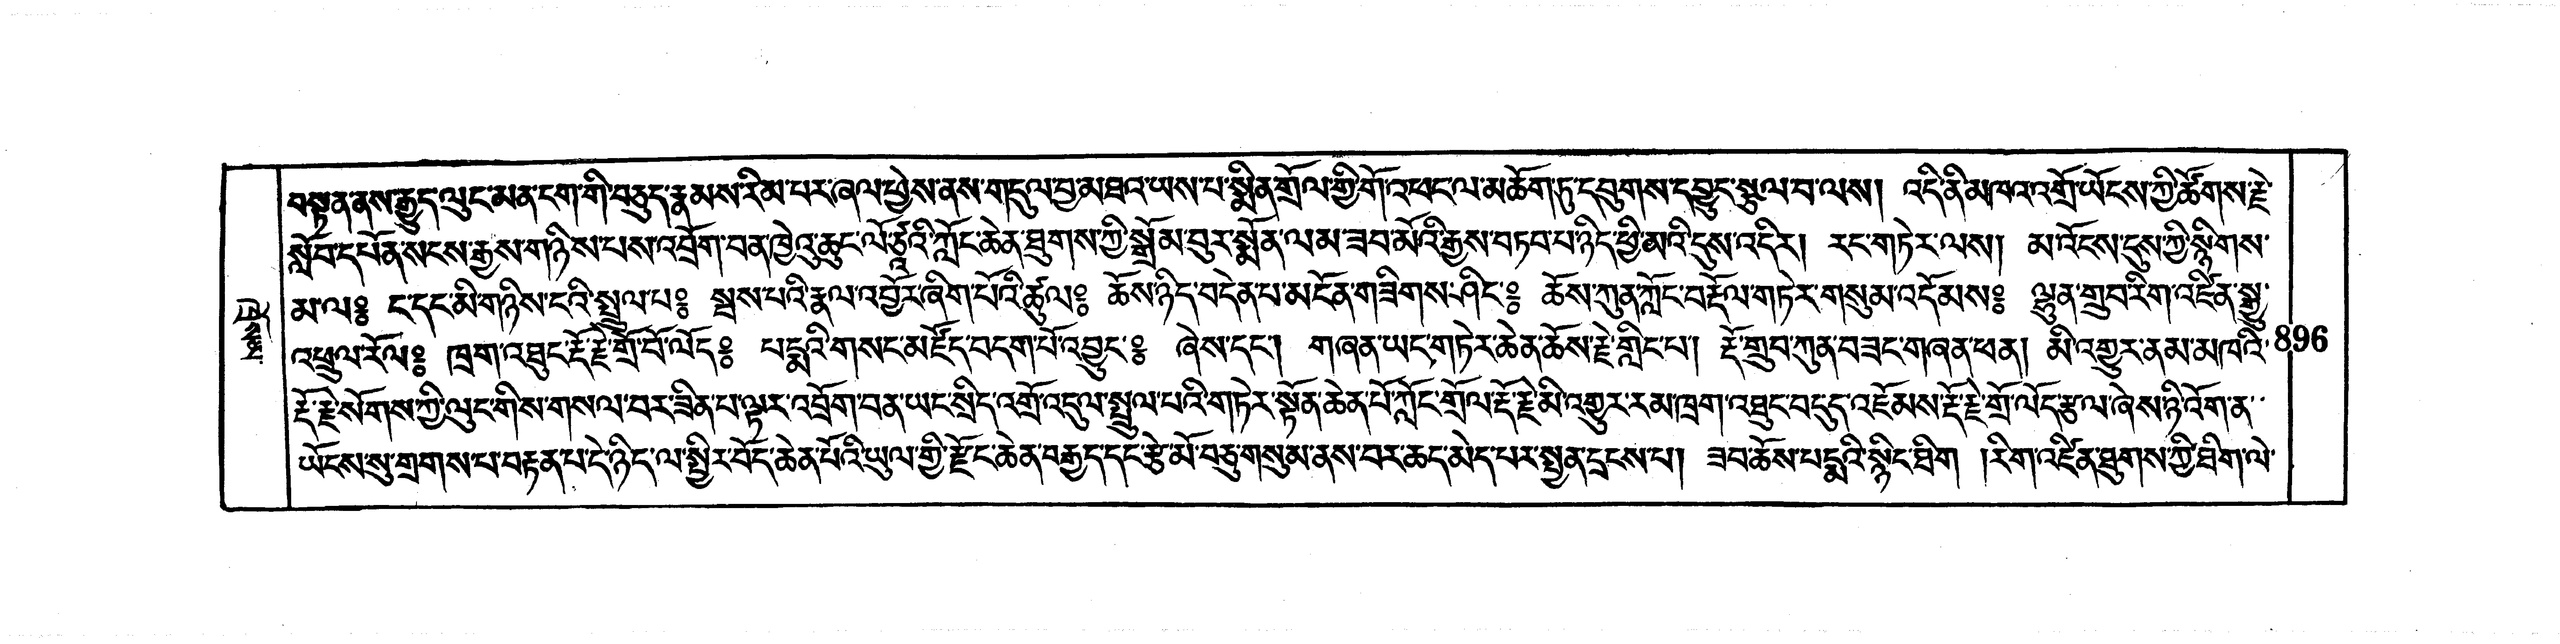 བསྟན་ནས་རྒྱུད་ལུང་མན་ངག་གི་བཅུད་རྣམས་རིམ་པར་ཞལ་ཕྱེས་ནས་གདུལ་བྱ་མཐའ་ཡས་པ་སྨིན་གྲོལ་གྱི་གོ་འཕང་ལ་མཆོག་ཏུ་དབུགས་དབྱུང་སྩལ་བ་ལས། འདི་ནི་མཁའ་འགྲོ་ཡོངས་ཀྱི་ཚོགས་རྗེ་
སློབ་དཔོན་སངས་རྒྱས་གཉིས་པས་འབྲོག་བན་ཁྱེའུ་ཆུང་ལོ་ཙཱའི་ཀློང་ཆེན་ཐུགས་ཀྱི་སྒྲོམ་བུར་སྨོན་ལམ་ཟབ་མོའི་རྒྱས་བཏབ་པ་ཉིད་ཕྱི་མའི་དུས་འདིར། རང་གཏེར་ལས། མ་འོངས་དུས་ཀྱི་སྙིགས་
མ་ལ༔ ང་དང་མི་གཉིས་ངའི་སྤྲུལ་པ༔ སྦས་པའི་རྣལ་འབྱོར་ཞིག་པོའི་ཚུལ༔ ཆོས་ཉིད་བདེན་པ་མངོན་གཟིགས་ཤིང་༔ ཆོས་ཀུན་ཀློང་བརྡོལ་གཏེར་གསུམ་འདོམས༔ ལྷུན་གྲུབ་རིག་འཛིན་སྒྱུ་
འཕྲུལ་རོལ༔ ཁྲག་འཐུང་རྡོ་རྗེ་གྲོ་བོ་ལོད༔ པདྨའི་གསང་མཛོད་བདག་པོ་འབྱུང་༔ ཞེས་དང་། གཞན་ཡང་གཏེར་ཆེན་ཆོས་རྗེ་གླིང་པ། རྡོ་གྲུབ་ཀུན་བཟང་གཞན་ཕན། མི་འགྱུར་ནམ་མཁའི་
རྡོ་རྗེ་སོགས་ཀྱི་ལུང་གིས་གསལ་བར་ཟིན་པ་ལྟར་འབྲོག་བན་ཡང་སྲིད་འགྲོ་འདུལ་སྤྲུལ་པའི་གཏེར་སྟོན་ཆེན་པོ་ཀློང་གྲོལ་རྡོ་རྗེ་མི་འགྱུར་རམ་ཁྲག་འཐུང་བདུད་འཇོམས་རྡོ་རྗེ་གྲོ་ལོད་རྩལ་ཞེས་ཉི་འོག་ན་
ཡོངས་སུ་གྲགས་པ་བརྟན་པ་དེ་ཉིད་ལ་སྤྱིར་བོད་ཆེན་པོའི་ཡུལ་གྱི་རྫོང་ཆེན་བརྒྱད་དང་རྩེ་མོ་བཅུ་གསུམ་ནས་བར་ཆད་མེད་པར་སྤྱན་དྲངས་པ། ཟབ་ཆོས་པདྨའི་སྙིང་ཐིག །རིག་འཛིན་ཐུགས་ཀྱི་ཐིག་ལེ་
896